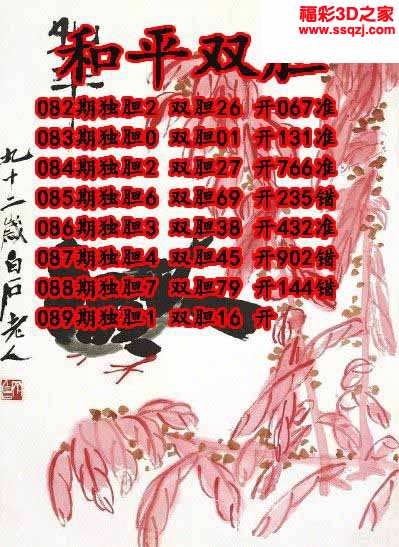 福彩3D之家
www.ssqzj.com
和平双胆
082期独胆2 双胆26 开067准
083期独胆0 双胆01 开131准
084期独胆2 双胆27 开766准
085期独胆6 双胆69 开235错
086期独胆3 双胆38 开432准
087期独胆4 双胆45 开902错
088期独胆7 双胆79 开144错
089期独胆1 双胆16 开
九十二岁白石老人